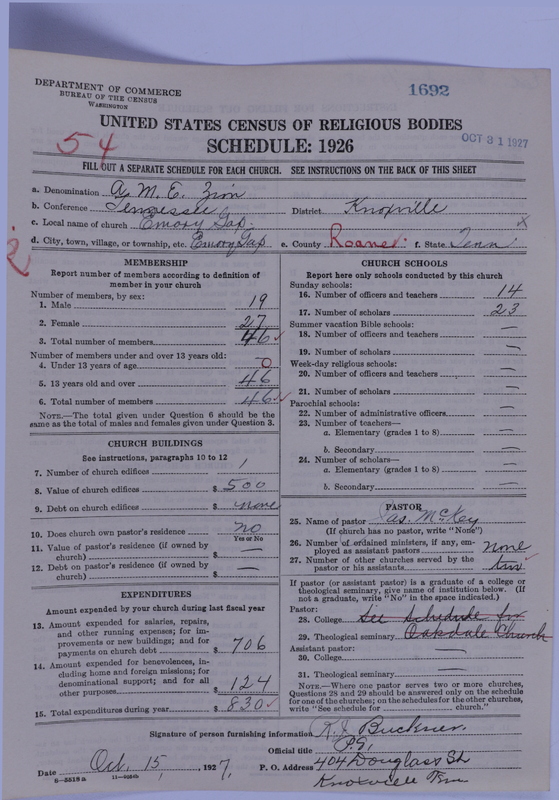 1692
DEPARTMENT OF COMMERCE
BUREAU OF THE CENSUS
WASHINGTON
UNITED STATES CENSUS OF RELIGIOUS BODIES
SCHEDULE: 1926
OCT 31 1927
54
FILL OUT A SEPARATE SCHEDULE FOR EACH CHURCH. SEE INSTRUCTIONS ON THE BACK OF THIS SHEET
a. Denomination A. M. E. Zion
b. Conference Tennessee District Knoxville
c. Local name of church Emory Gap
d. City, town, village, or township, etc. Emory Gap e. County Roane f. State Tenn x
MEMBERSHIP
Report number of members according to definition of
member in your church
Number of members, by sex:
1. Male 19
2. Female 27
3. Total number of members 46
Number of members under and over 13 years old:
4. Under 13 years of age 0
5. 13 years old and over 46
6. Total number of members 46
NOTE.—The total given under Question 6 should be the
same as the total of males and females given under Question 3.
CHURCH BUILDINGS
See instructions, paragraphs 10 to 12
7. Number of church edifices 1
8. Value of church edifices $ 500
9. Debt on church edifices $ none
10. Does church own pastor's residence no
Yes or No
11. Value of pastor's residence (if owned by
church) $ —
12. Debt on pastor's residence (if owned by
church) $ —
EXPENDITURES
Amount expended by church during last fiscal year
13. Amount expended for salaries, repairs,
and other running expenses; for im-
provements or new buildings; and for
payments on church debt $ 706
14. Amount expended for benevolences, in-
cluding home and foreign missions; for
denominational support; and for all
other purposes $ 124
15. Total expenditures during year $ 830
CHURCH SCHOOLS
Report here only schools conducted by this church
Sunday schools:
16. Number of officers and teachers 14
17. Number of scholars 23
Summer vacation Bible schools:
18. Number of officers and teachers —
19. Number of scholars —
Week-day religious schools:
20. Number of officers and teachers —
21. Number of scholars —
Parochial schools:
22. Number of administrative officers —
23. Number of teachers—
a. Elementary (grades 1 to 8) —
b. Secondary —
24. Number of scholars—
a. Elementary (grades 1 to 8) —
b. Secondary —
PASTOR
25. Name of pastor Jas. McKey
(If church has no pastor, write "None")
26. Number of ordained ministers, if any, em-
ployed as assistant pastors none
27. Number of other churches served by the
pastor or his assistants two
If pastor (or assistant pastor) is a graduate of a college or
theological seminary, give name of institution below. (If
not a graduate, write "No" in the space indicated.)
Pastor:
28. College See Schedule for
29. Theological seminary Oakdale Church
Assistant pastor:
30. College —
31. Theological seminary —
NOTE.—Where one pastor serves two or more churches,
Questions 28 and 29 should be answered only on the schedule
for one of the churches; on the schedules for the other churches,
write "See schedule for church."
Signature of person furnishing information Buckner
Official title P.E.
Date Oct. 15, 1927, P. O. Address 404 Douglass St
8—5518a Knoxville Tenn